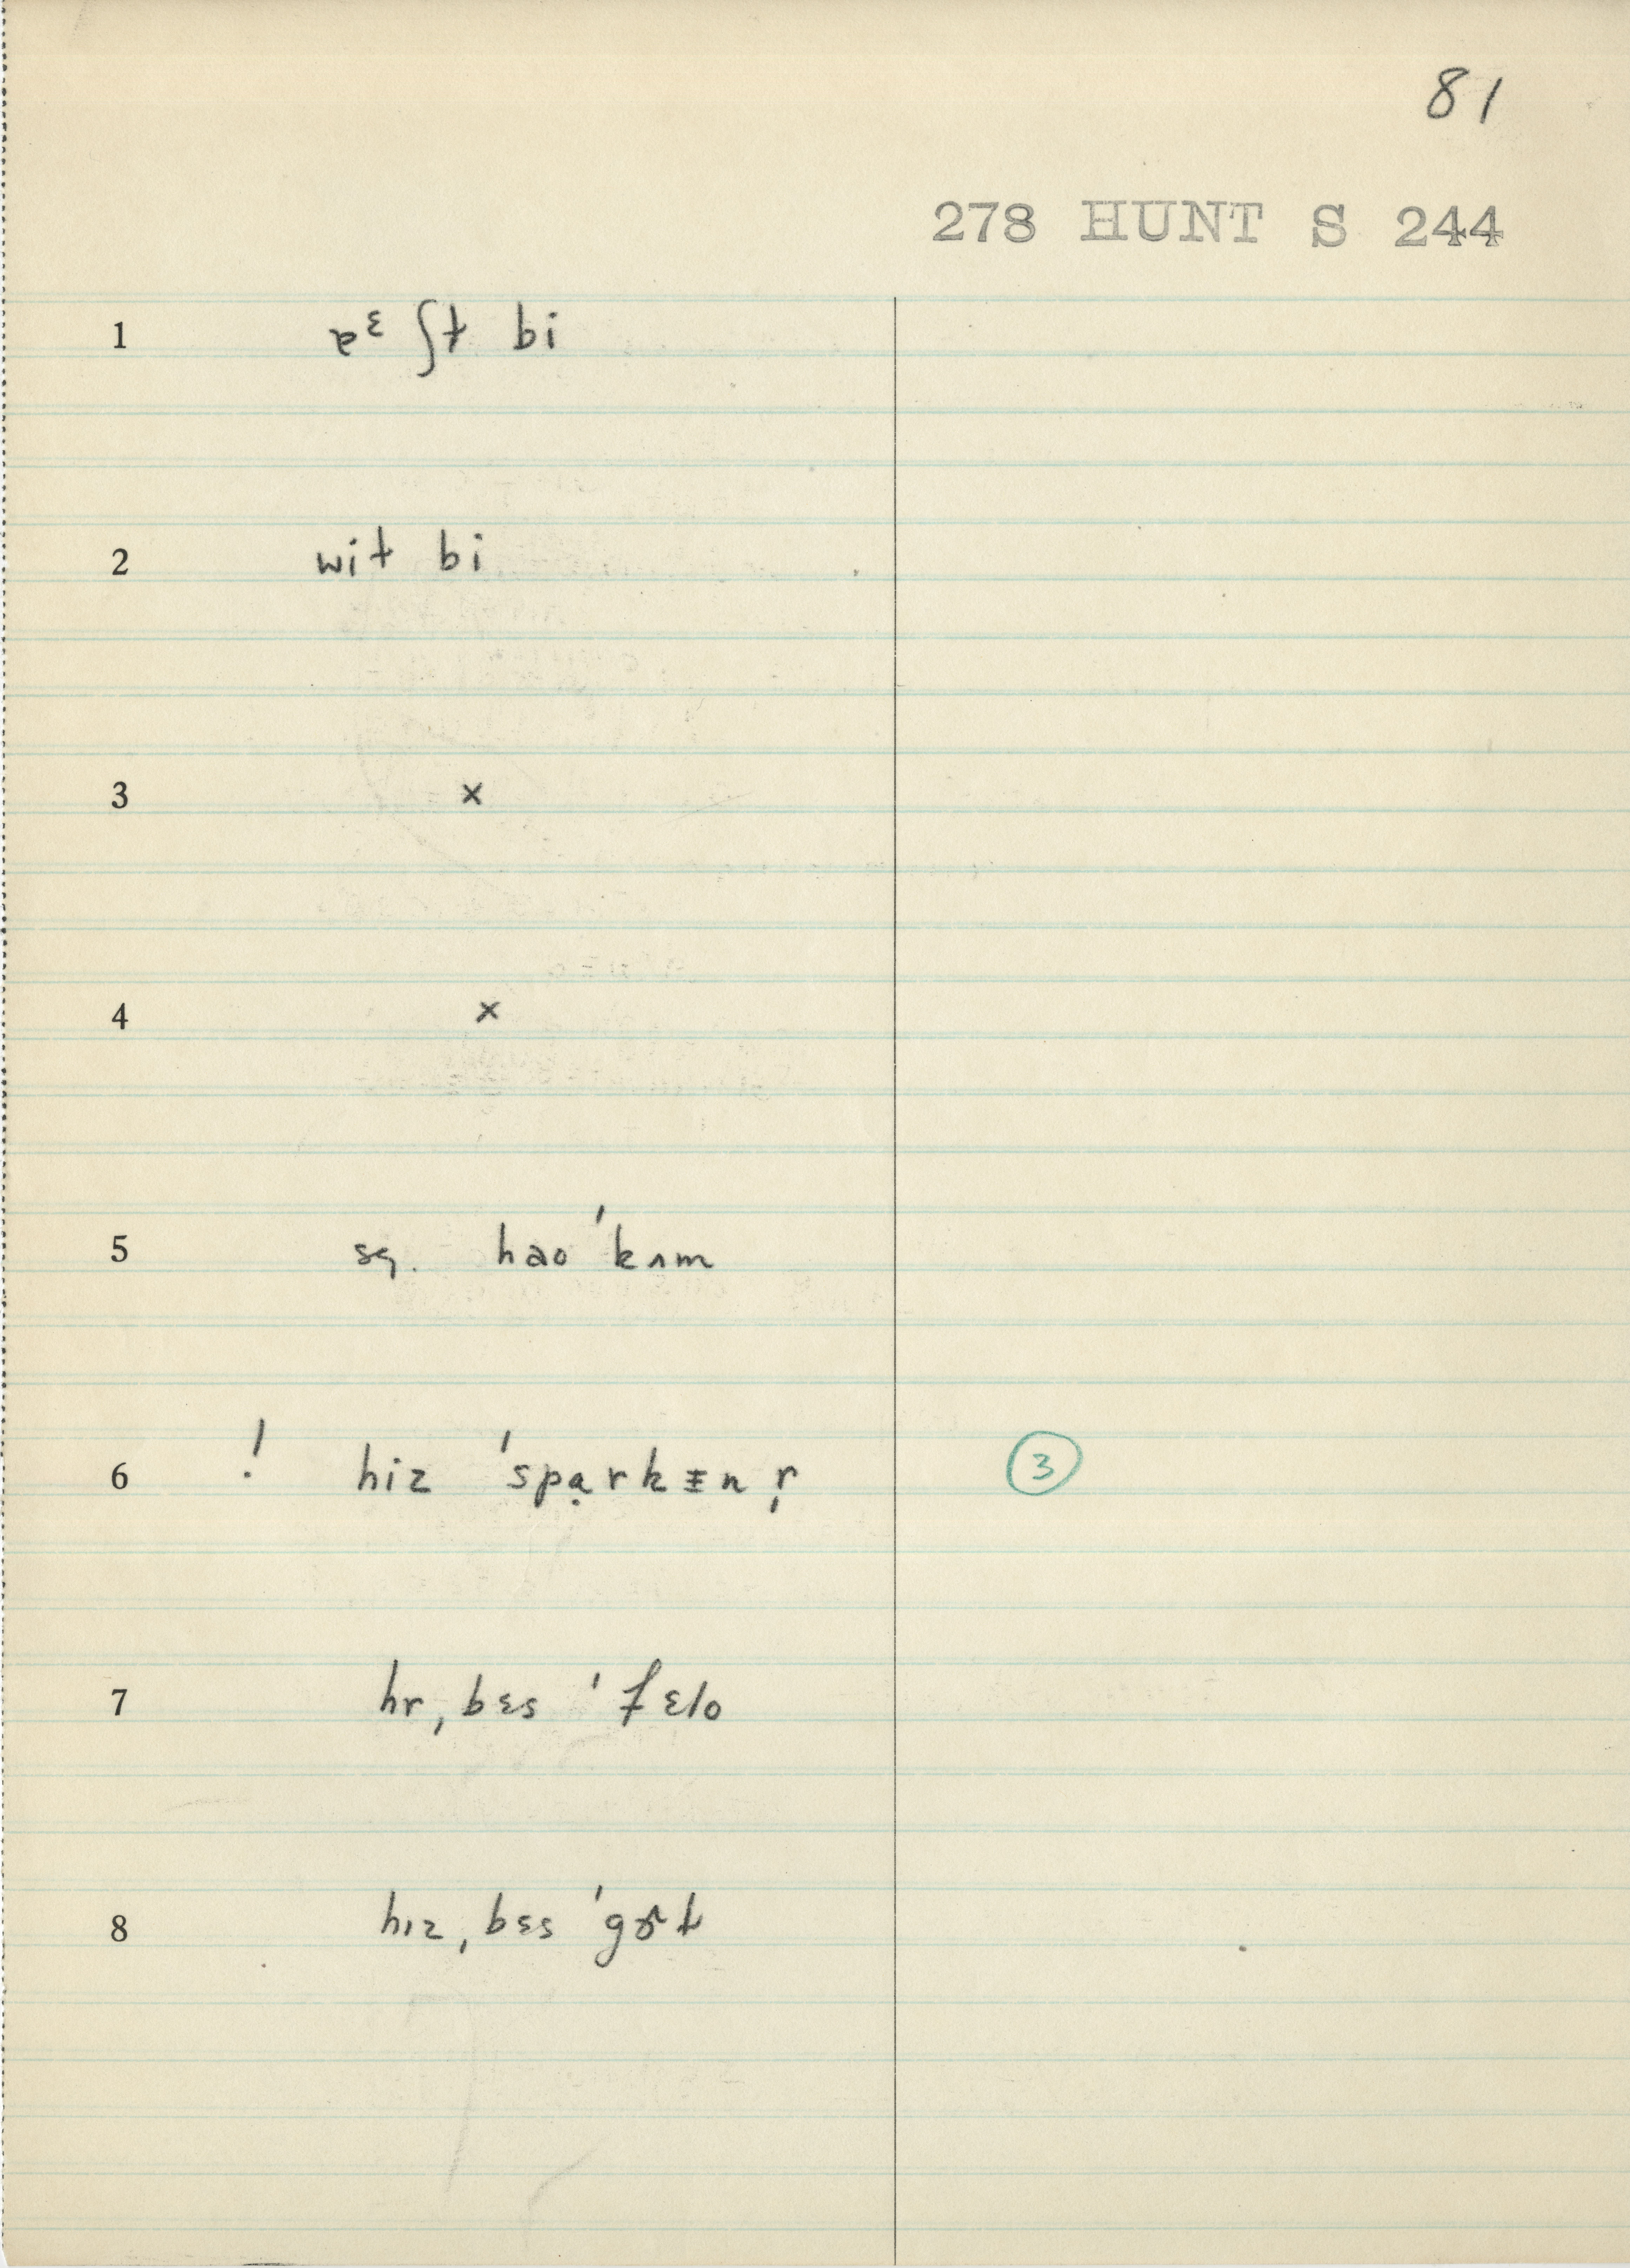 81
278 HUNT S 244
1 ɐᵋ ʃt bi
2 wit bi
3 x
4 x
5 sq. hao ˈkʌm
6 ! hiz ˈspɑ̣rkɪnr̩ 3
7 hr ˌbɛs ˈfɛlo
8 hɪz ˌbɛs ˈgɚt